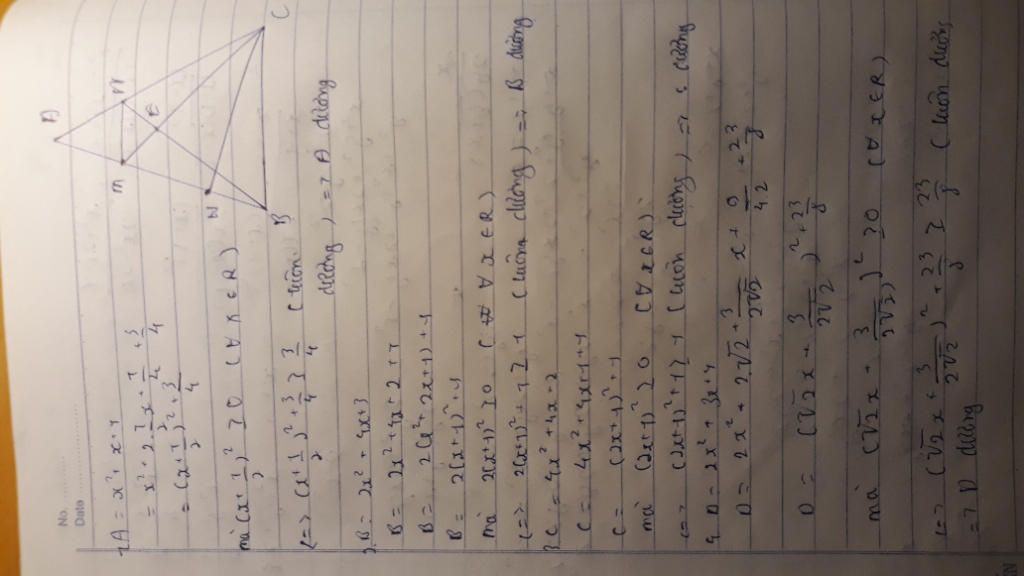 No. ........
Date ....................
1 A = x² + x + 1
= x² + 2 . 1/2 x + 1/4 + 3/4
= (x + 1/2)² + 3/4
mà (x + 1/2)² ≥ 0 (∀ x ∈ R)
<=> (x + 1/2)² + 3/4 ≥ 3/4 (luôn
dương) => A dương
2. B = 2x² + 4x + 3
B = 2x² + 4x + 2 + 1
B = 2(x² + 2x + 1) + 1
B = 2(x + 1)² + 1
mà 2(x+1)² ≥ 0 (∀ x ∈ R)
<=> 2(x+1)² + 1 ≥ 1 (luôn dương) => B dương
3 C = 4x² + 4x + 2
C = 4x² + 4x + 1 + 1
C = (2x + 1)² + 1
mà (2x + 1)² ≥ 0 (∀ x ∈ R)
<=> (2x + 1)² + 1 ≥ 1 (luôn dương) => C dương
4. D = 2x² + 3x + 4
D = 2x² + 2√2 . 3/2√2 x + 9/4.2 + 23/8
D = (√2 x + 3/2√2)² + 23/8
mà (√2 x + 3/2√2)² ≥ 0 (∀ x ∈ R)
<=> (√2 x + 3/2√2)² + 23/8 ≥ 23/8 (luôn dương)
=> D dương
A
M
N
E
H
B
C